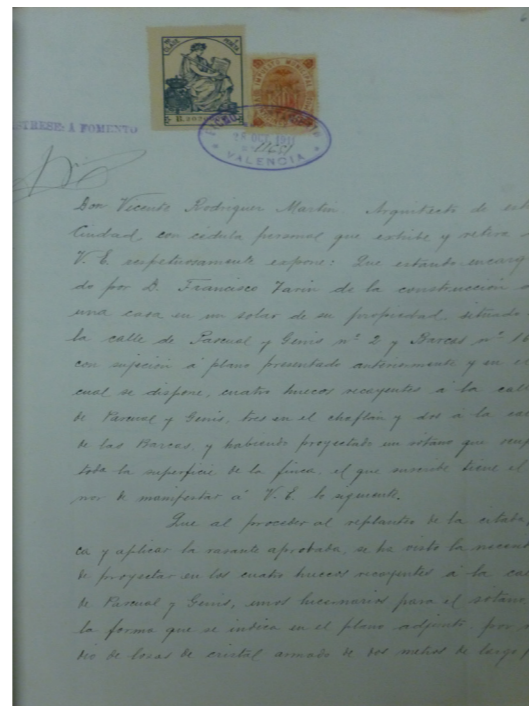 6
CLASE
PESETA
B.
SELLO MUNICIPAL
REGISTRESE: A FOMENTO
25 OCT. 1911
VALENCIA
Don Vicente Rodriguez Martin Arquitecto de esta
Ciudad, con cédula personal que exhibe y retira a
V. E. respetuosamente expone: Que estando encarg
do por D. Francisco Jarin de la construcción d
una casa en un solar de su propiedad situado
la calle de Pascual y Genis nº 2 y Barcas nº 1
con sujeción á plano presentado anteriormente y en el
cual se dispone, cuatro huecos recayentes á la call
de Pascual y Genis, tres en el chaflán y dos á la ca
de las Barcas, y habiendo proyectado un sótano que ocup
toda la superficie de la finca, el que suscribe tiene el
nor de manifestar á V. E. lo siguiente.
Que al proceder al replanteo de la citada
ca y aplicar la rasante aprobada, se ha visto la necesi
de proyectar en los cuatro huecos recayentes á la ca
de Pascual y Genis, unos lucernarios para el sótano
la forma que se indica en el plano adjunto por
dio de losas de cristal armado de dos metros de largo p